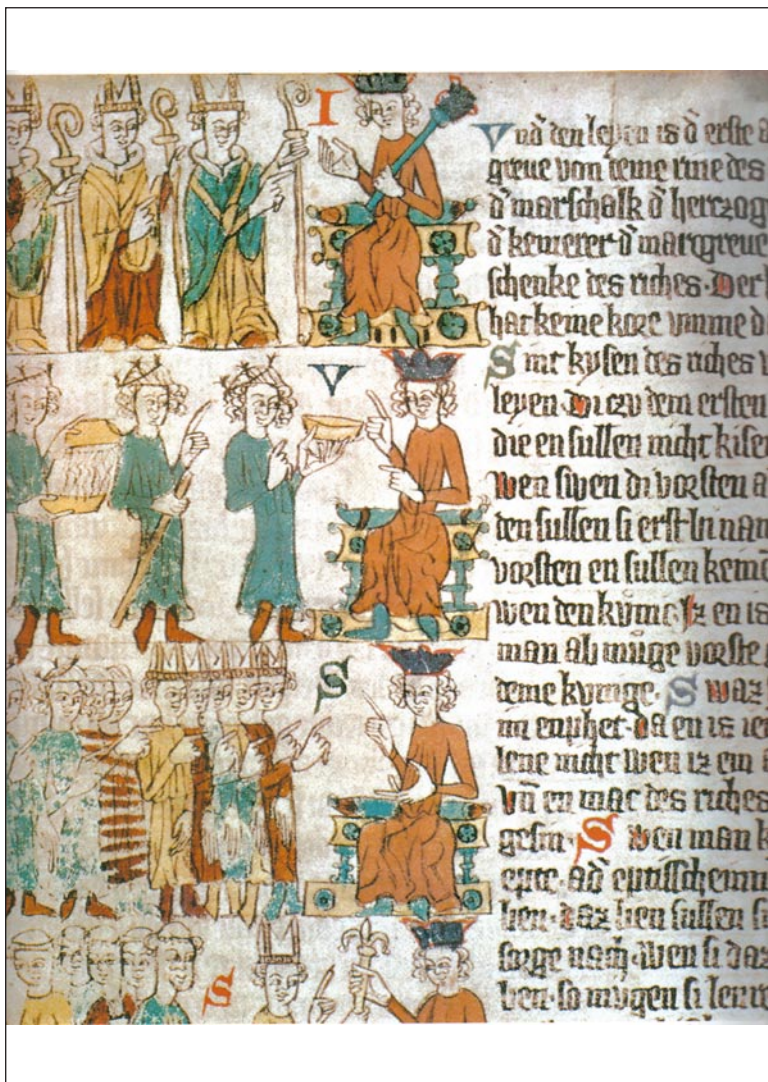 I
V
S
S
Vnd den leyen is d̄ erste
greue von deme rine des
d̄ marschalk d̄ herczog
d̄ kemerer d̄ marcgreue
schenke des riches. Der
hat keine kore vmme d
Sint kysen des riches v
leyen. di czu dem ersten
die en sullen nicht kise
wen swen di vorsten a
den sullen si erst
vorsten en sullen
wen den kunic. Iz en is
man ab muge vorste
deme kunige. Swaz
im enphet. da en is
lene nicht wen iz ein
vn̄ en mac des riches
gesin. Swen man k
epte. ad̄
lien. daz lien sullen si
sorge nach. wen si daz
ben. so mugen si